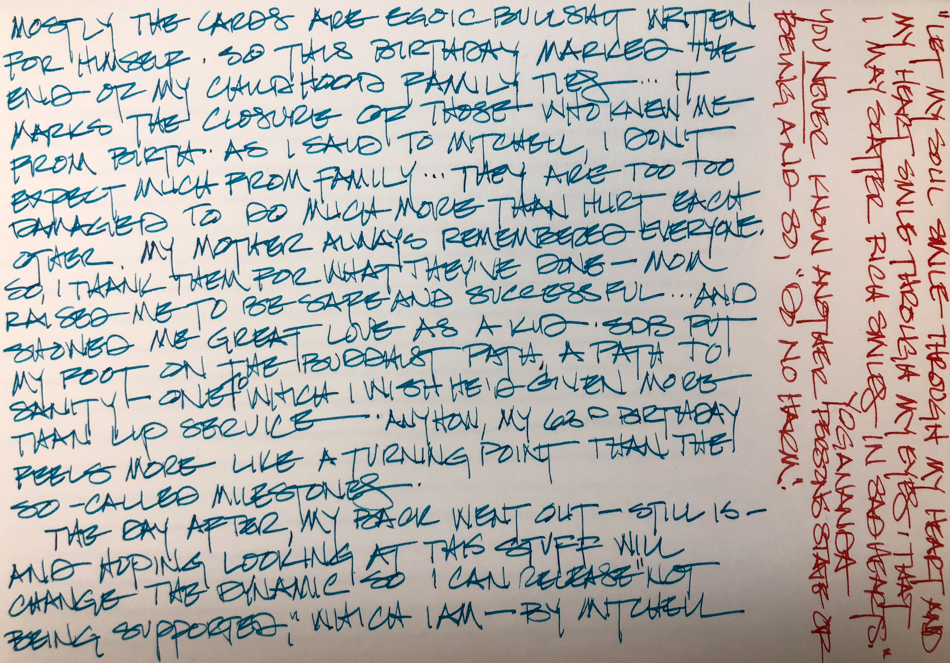 MOSTLY THE CARDS ARE EGOIC BULLSHIT WRITTEN
FOR HIMSELF. SO THIS BIRTHDAY MARKED THE
END OF MY CHILDHOOD FAMILY TIES... IT
MARKS THE CLOSURE OF THOSE WHO KNEW ME
FROM BIRTH. AS I SAID TO MITCHELL, I DON'T
EXPECT MUCH FROM FAMILY... THEY ARE TOO TOO
DAMAGED TO DO MUCH MORE THAN HURT EACH
OTHER. MY MOTHER ALWAYS REMEMBERED EVERYONE.
SO, I THANK THEM FOR WHAT THEY'VE DONE — MOM
RAISED ME TO BE SAFE AND SUCCESSFUL... AND
SHOWED ME GREAT LOVE AS A KID. SDB PUT
MY FOOT ON THE BUDDHIST PATH, A PATH TO
SANITY — ONE TO WHICH I WISH HE'D GIVEN MORE
THAN LIP SERVICE — ANYHOW, MY 62D BIRTHDAY
FEELS MORE LIKE A TURNING POINT THAN THE
SO-CALLED MILESTONES.
THE DAY AFTER, MY BACK WENT OUT — STILL IS —
AND HOPING LOOKING AT THIS STUFF WILL
CHANGE THE DYNAMIC SO I CAN RELEASE "NOT
BEING SUPPORTED," WHICH I AM — BY MITCHELL
"LET MY SOUL SMILE THROUGH MY HEART AND
MY HEART SMILE THROUGH MY EYES, THAT
I MAY SCATTER RICH SMILES IN SAD HEARTS."
YOGANANDA
YOU NEVER KNOW ANOTHER PERSON'S STATE OF
BEING, AND SO, "DO NO HARM."